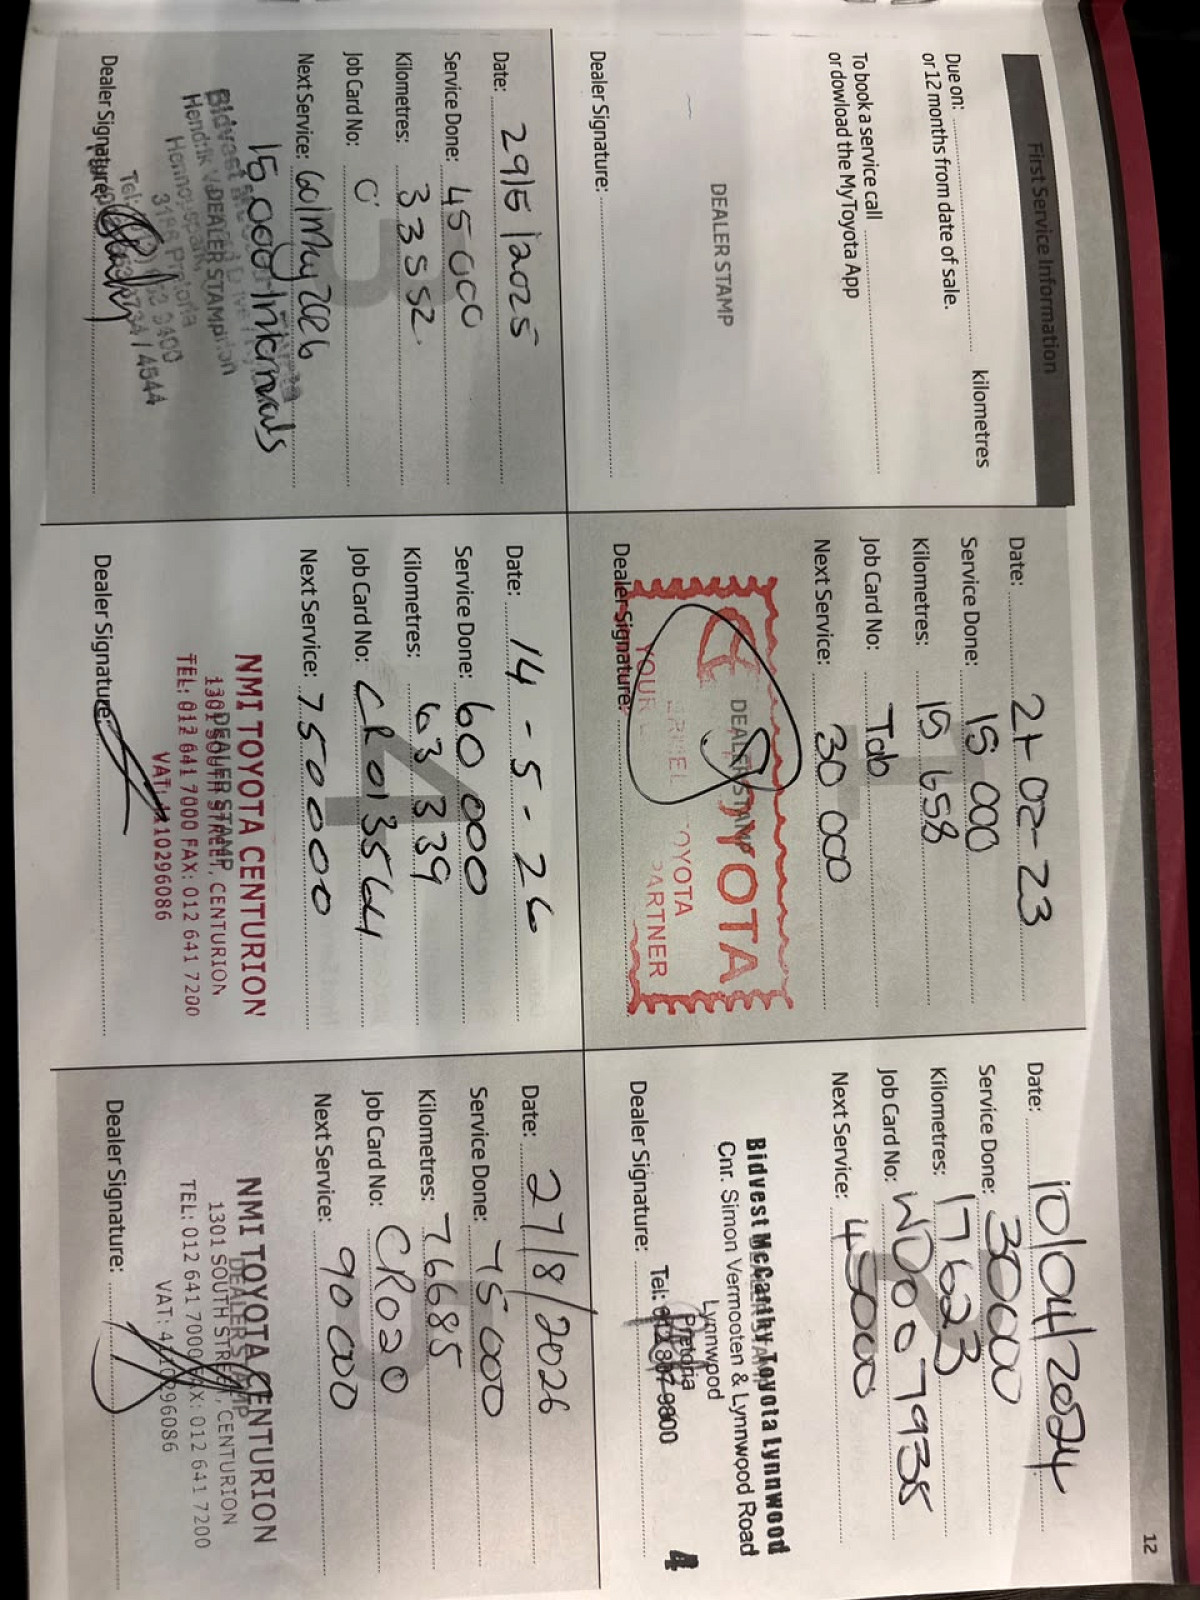 12
First Service Information
Due on: kilometres
or 12 months from date of sale.
To book a service call
or dowload the MyToyota App
DEALER STAMP
Dealer Signature:
Date: 21-02-23
Service Done: 15 000
Kilometres: 15 658
Job Card No: Tab
Next Service: 30 000
DEALER STAMP
TOYOTA
YOUR TOYOTA
PARTNER
Dealer Signature:
Date: 10/04/2024
Service Done: 30000
Kilometres: 17623
Job Card No: WD007938
Next Service: 45000
Bidvest McCarthy Toyota Lynnwood
Cnr. Simon Vermooten & Lynnwood Road
Lynnwood
Pretoria
Tel: 012 807 9800
4
Dealer Signature:
Date: 29/5/2025
Service Done: 45 000
Kilometres: 33552
Job Card No: 0
Next Service: 60/May 2026
15,000 Intervals
DEALER STAMP
Pretoria
Dealer Signature:
4
Date: 14-5-26
Service Done: 60 000
Kilometres: 63 339
Job Card No: CR013564
Next Service: 750000
NMI TOYOTA CENTURION
DEALER STAMP
1301 SOUTH STREET, CENTURION
TEL: 012 641 7000 FAX: 012 641 7200
VAT: 4110296086
Dealer Signature:
5
Date: 27/8/2026
Service Done: 75000
Kilometres: 76685
Job Card No: CR020
Next Service: 90 000
NMI TOYOTA CENTURION
DEALER STAMP
1301 SOUTH STREET, CENTURION
TEL: 012 641 7000 FAX: 012 641 7200
VAT: 4110296086
Dealer Signature: